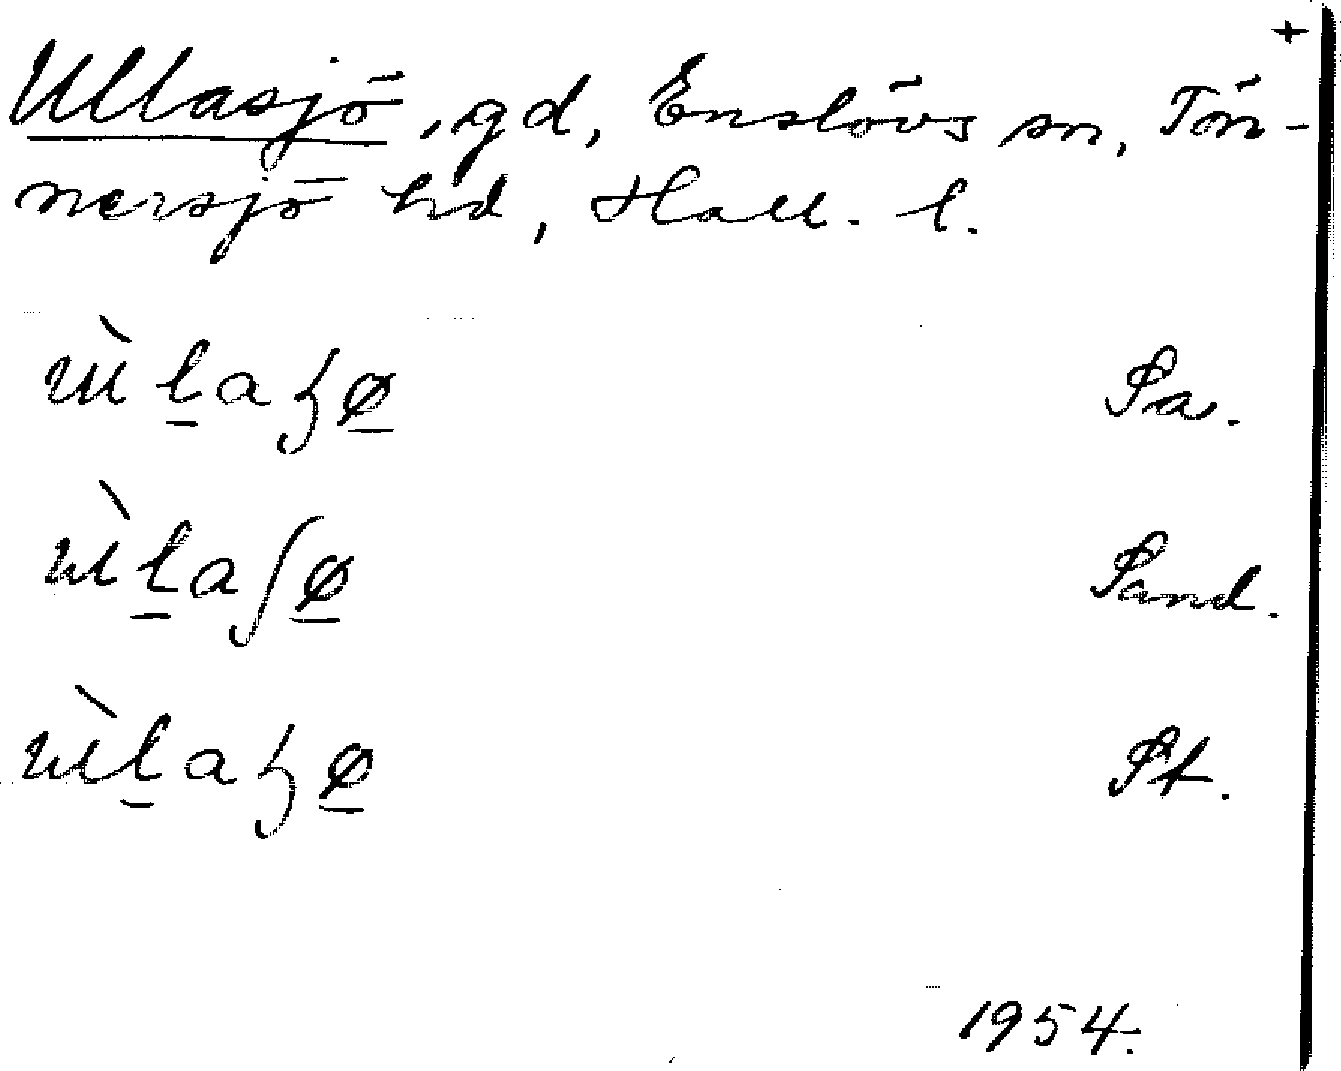 +
Ullasjö, gd, Enslövs sn, Tön-
nersjö hd, Hall. l.
ùl̲aɧø̲ Sa.
ùl̲aʃø̲ Sand.
ùl̲aɧø̲ St.
1954.